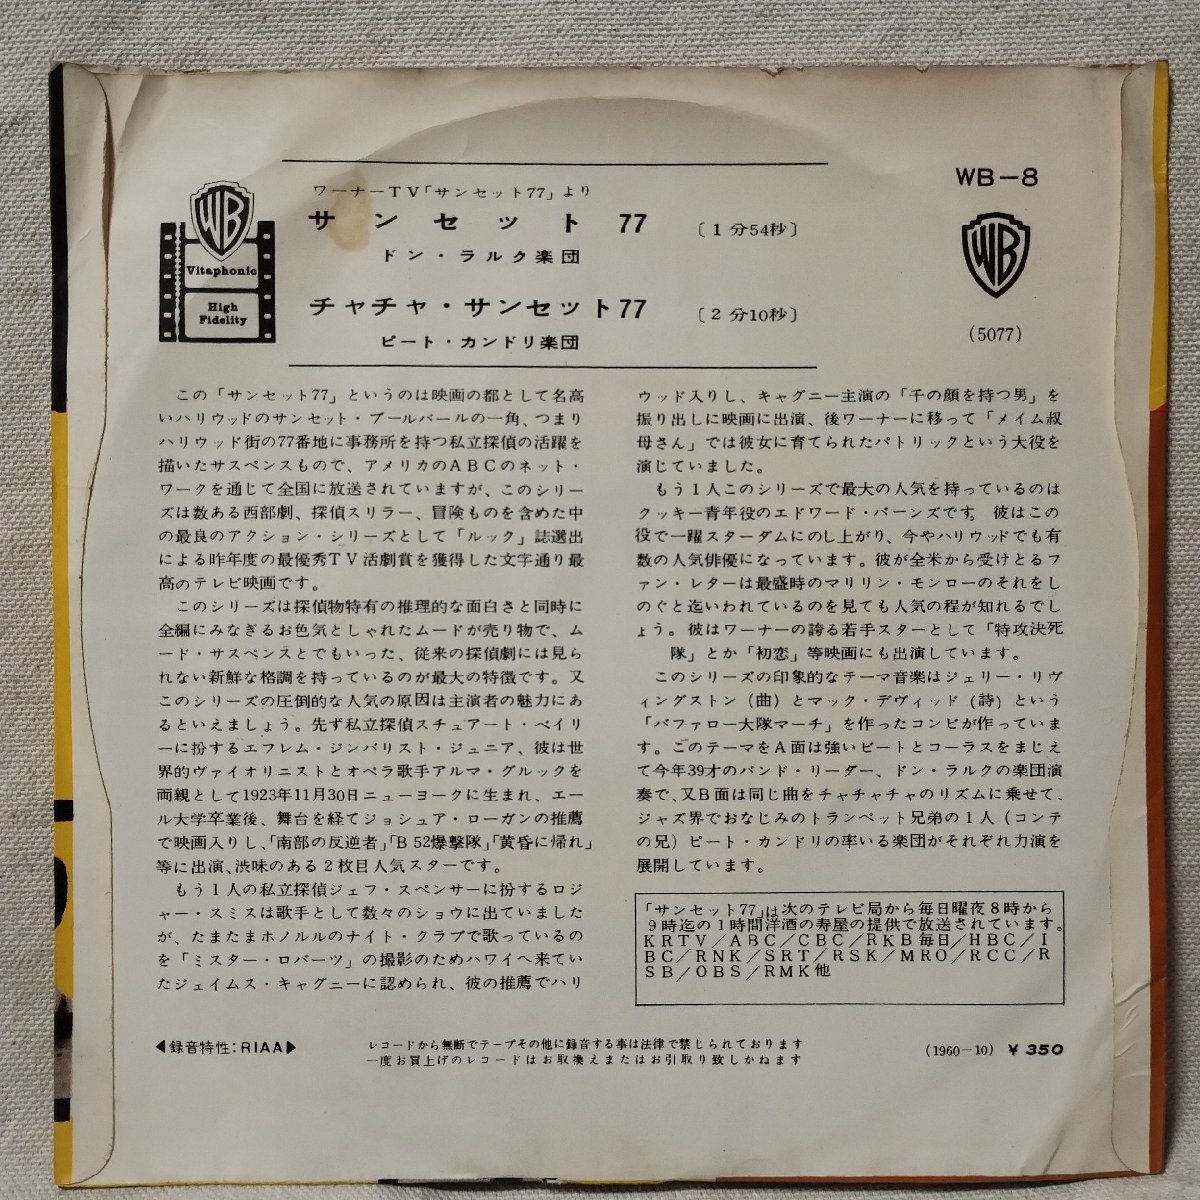 ワーナーTV「サンセット77」より
サンセット 77 〔1分54秒〕
ドン・ラルク楽団
チャチャ・サンセット77 〔2分10秒〕
ピート・カンドリ楽団
WB
Vitaphonic
High
Fidelity
WB-8
WB
(5077)
この「サンセット77」というのは映画の都として名高
いハリウッドのサンセット・ブールバールの一角、つまり
ハリウッド街の77番地に事務所を持つ私立探偵の活躍を
描いたサスペンスもので、アメリカのABCのネット・
ワークを通じて全国に放送されていますが、このシリー
ズは数ある西部劇、探偵スリラー、冒険ものを含めた中
の最良のアクション・シリーズとして「ルック」誌選出
による昨年度の最優秀TV活劇賞を獲得した文字通り最
高のテレビ映画です。
このシリーズは探偵物特有の推理的な面白さと同時に
全編にみなぎるお色気としゃれたムードが売り物で、ム
ード・サスペンスとでもいった、従来の探偵劇には見ら
れない新鮮な格調を持っているのが最大の特徴です。又
このシリーズの圧倒的な人気の原因は主演者の魅力にあ
るといえましょう。先ず私立探偵スチュアート・ベイリ
ーに扮するエフレム・ジンバリスト・ジュニア、彼は世
界的ヴァイオリニストとオペラ歌手アルマ・グルックを
両親として1923年11月30日ニューヨークに生まれ、エー
ル大学卒業後、舞台を経てジョシュア・ローガンの推薦
で映画入りし、「南部の反逆者」「B52爆撃隊」「黄昏に帰れ」
等に出演、渋味のある2枚目人気スターです。
もう1人の私立探偵ジェフ・スペンサーに扮するロジ
ャー・スミスは歌手として数々のショウに出ていました
が、たまたまホノルルのナイト・クラブで歌っているの
を「ミスター・ロバーツ」の撮影のためハワイへ来てい
たジェイムス・キャグニーに認められ、彼の推薦でハリ
ウッド入りし、キャグニー主演の「千の顔を持つ男」を
振り出しに映画に出演、後ワーナーに移って「メイム叔
母さん」では彼女に育てられたパトリックという大役を
演じていました。
もう1人このシリーズで最大の人気を持っているのは
クッキー青年役のエドワード・バーンズです。彼はこの
役で一躍スターダムにのし上がり、今やハリウッドでも有
数の人気俳優になっています。彼が全米から受けとるフ
ァン・レターは最盛時のマリリン・モンローのそれをし
のぐと迄いわれているのを見ても人気の程が知れるでし
ょう。彼はワーナーの誇る若手スターとして「特攻決死
隊」とか「初恋」等映画にも出演しています。
このシリーズの印象的なテーマ音楽はジェリー・リヴ
ィングストン(曲)とマック・デヴィッド(詩)という
「バファロー大隊マーチ」を作ったコンビが作っていま
す。このテーマをA面は強いビートとコーラスをまじえ
て今年39才のバンド・リーダー、ドン・ラルクの楽団演
奏で、又B面は同じ曲をチャチャチャのリズムに乗せて、
ジャズ界でおなじみのトランペット兄弟の1人(コンテ
の兄)ピート・カンドリの率いる楽団がそれぞれ力演を
展開しています。
「サンセット77」は次のテレビ局から毎日曜夜8時から
9時迄の1時間洋酒の寿屋の提供で放送されています。
KRTV/ABC/CBC/RKB毎日/HBC/I
BC/RNK/SRT/RSK/MRO/RCC/R
SB/OBS/RMK他
◀録音特性:RIAA▶
レコードから無断でテープその他に録音する事は法律で禁じられております
一度お買上げのレコードはお取換えまたはお引取り致しかねます
(1960-10) ¥350